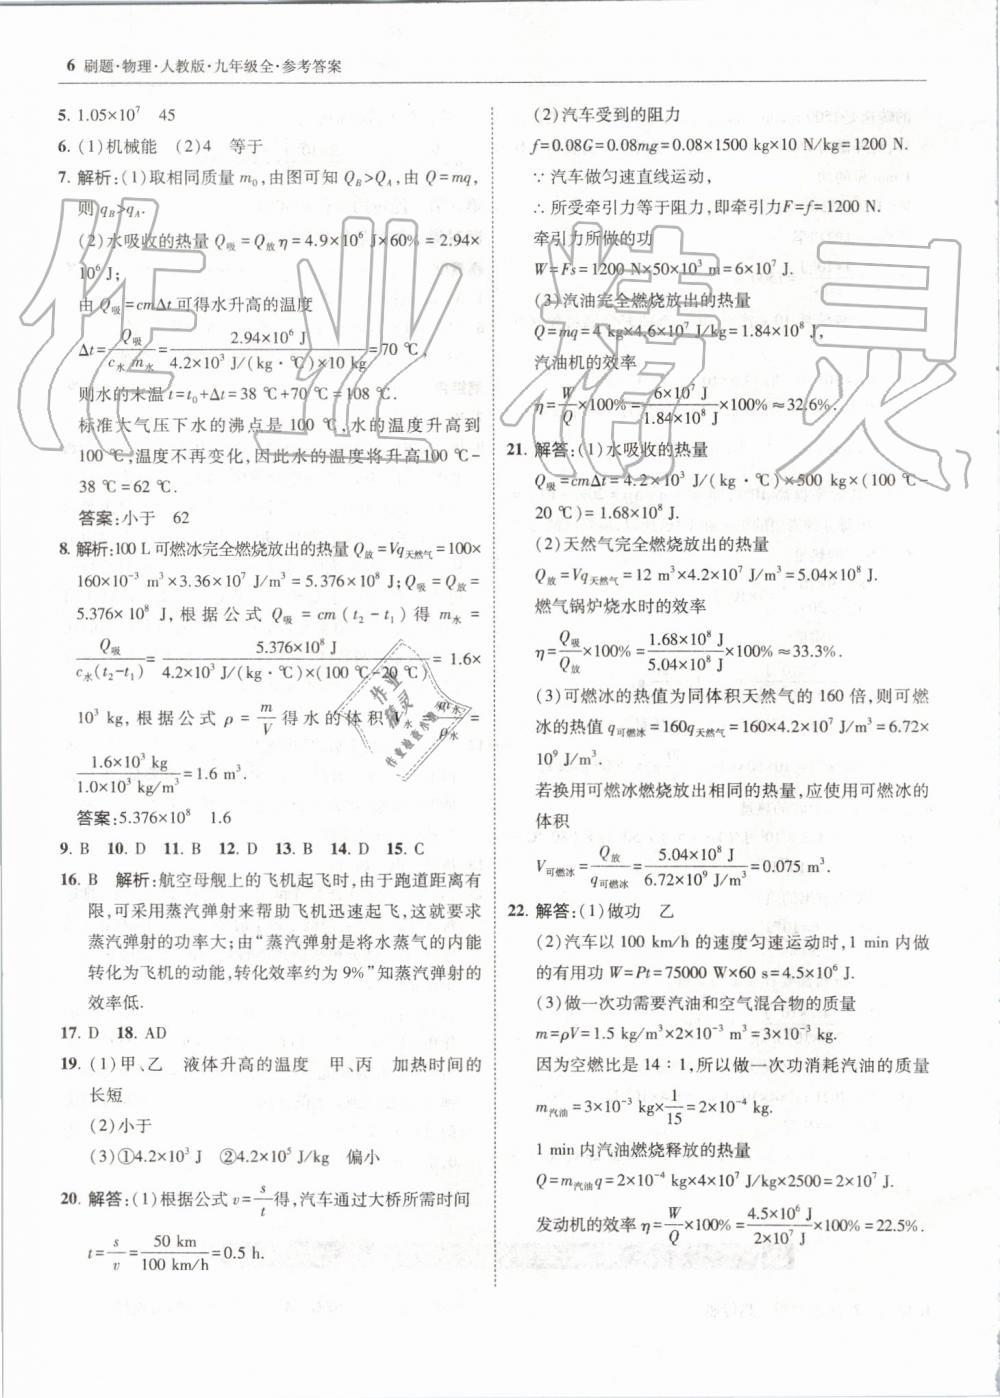 6 刷题·物理·人教版·九年级全·参考答案
5. 1.05×10⁷ 45
6. (1)机械能 (2)4 等于
7. 解析:(1)取相同质量 m₀,由图可知 Q_B>Q_A,由 Q=mq,
则 q_B>q_A.
(2)水吸收的热量 Q吸=Q放η=4.9×10⁶ J×60%=2.94×
10⁶ J;
由 Q吸=cmΔt 可得水升高的温度
Δt=Q吸/(c水m水)=2.94×10⁶ J/(4.2×10³ J/(kg·℃)×10 kg)=70 ℃,
则水的末温 t=t₀+Δt=38 ℃+70 ℃=108 ℃.
标准大气压下水的沸点是 100 ℃,水的温度升高到
100 ℃,温度不再变化,因此水的温度将升高100 ℃-
38 ℃=62 ℃.
答案:小于 62
8. 解析:100 L可燃冰完全燃烧放出的热量 Q放=Vq天然气=100×
160×10⁻³ m³×3.36×10⁷ J/m³=5.376×10⁸ J;Q吸=Q放=
5.376×10⁸ J,根据公式 Q吸=cm(t₂-t₁)得 m水=
Q吸/(c水(t₂-t₁))=5.376×10⁸ J/(4.2×10³ J/(kg·℃)×(100 ℃-20 ℃))=1.6×
10³ kg,根据公式 ρ=m/V 得水的体积 V水=m水/ρ水=
1.6×10³ kg/(1.0×10³ kg/m³)=1.6 m³.
答案:5.376×10⁸ 1.6
9. B 10. D 11. B 12. D 13. B 14. D 15. C
16. B 解析:航空母舰上的飞机起飞时,由于跑道距离有
限,可采用蒸汽弹射来帮助飞机迅速起飞,这就要求
蒸汽弹射的功率大;由“蒸汽弹射是将水蒸气的内能
转化为飞机的动能,转化效率约为 9%”知蒸汽弹射的
效率低.
17. D 18. AD
19. (1)甲、乙 液体升高的温度 甲、丙 加热时间的
长短
(2)小于
(3)①4.2×10³ J ②4.2×10⁵ J/kg 偏小
20. 解答:(1)根据公式 v=s/t得,汽车通过大桥所需时间
t=s/v=50 km/(100 km/h)=0.5 h.
(2)汽车受到的阻力
f=0.08G=0.08mg=0.08×1500 kg×10 N/kg=1200 N.
∵ 汽车做匀速直线运动,
∴ 所受牵引力等于阻力,即牵引力F=f=1200 N.
牵引力所做的功
W=Fs=1200 N×50×10³ m=6×10⁷ J.
(3)汽油完全燃烧放出的热量
Q=mq=4 kg×4.6×10⁷ J/kg=1.84×10⁸ J,
汽油机的效率
η=W/Q×100%=6×10⁷ J/(1.84×10⁸ J)×100%≈32.6%.
21. 解答:(1)水吸收的热量
Q吸=cmΔt=4.2×10³ J/(kg·℃)×500 kg×(100 ℃-
20 ℃)=1.68×10⁸ J.
(2)天然气完全燃烧放出的热量
Q放=Vq天然气=12 m³×4.2×10⁷ J/m³=5.04×10⁸ J.
燃气锅炉烧水时的效率
η=Q吸/Q放×100%=1.68×10⁸ J/(5.04×10⁸ J)×100%≈33.3%.
(3)可燃冰的热值为同体积天然气的 160 倍,则可燃
冰的热值 q可燃冰=160q天然气=160×4.2×10⁷ J/m³=6.72×
10⁹ J/m³.
若换用可燃冰燃烧放出相同的热量,应使用可燃冰的
体积
V可燃冰=Q放/q可燃冰=5.04×10⁸ J/(6.72×10⁹ J/m³)=0.075 m³.
22. 解答:(1)做功 乙
(2)汽车以 100 km/h 的速度匀速运动时,1 min 内做
的有用功 W=Pt=75000 W×60 s=4.5×10⁶ J.
(3)做一次功需要汽油和空气混合物的质量
m=ρV=1.5 kg/m³×2×10⁻³ m³=3×10⁻³ kg.
因为空燃比是 14∶1,所以做一次功消耗汽油的质量
m汽油=3×10⁻³ kg×1/15=2×10⁻⁴ kg.
1 min 内汽油燃烧释放的热量
Q=m汽油q=2×10⁻⁴ kg×4×10⁷ J/kg×2500=2×10⁷ J.
发动机的效率 η=W/Q×100%=4.5×10⁶ J/(2×10⁷ J)×100%=22.5%.
作业精灵
作业精灵